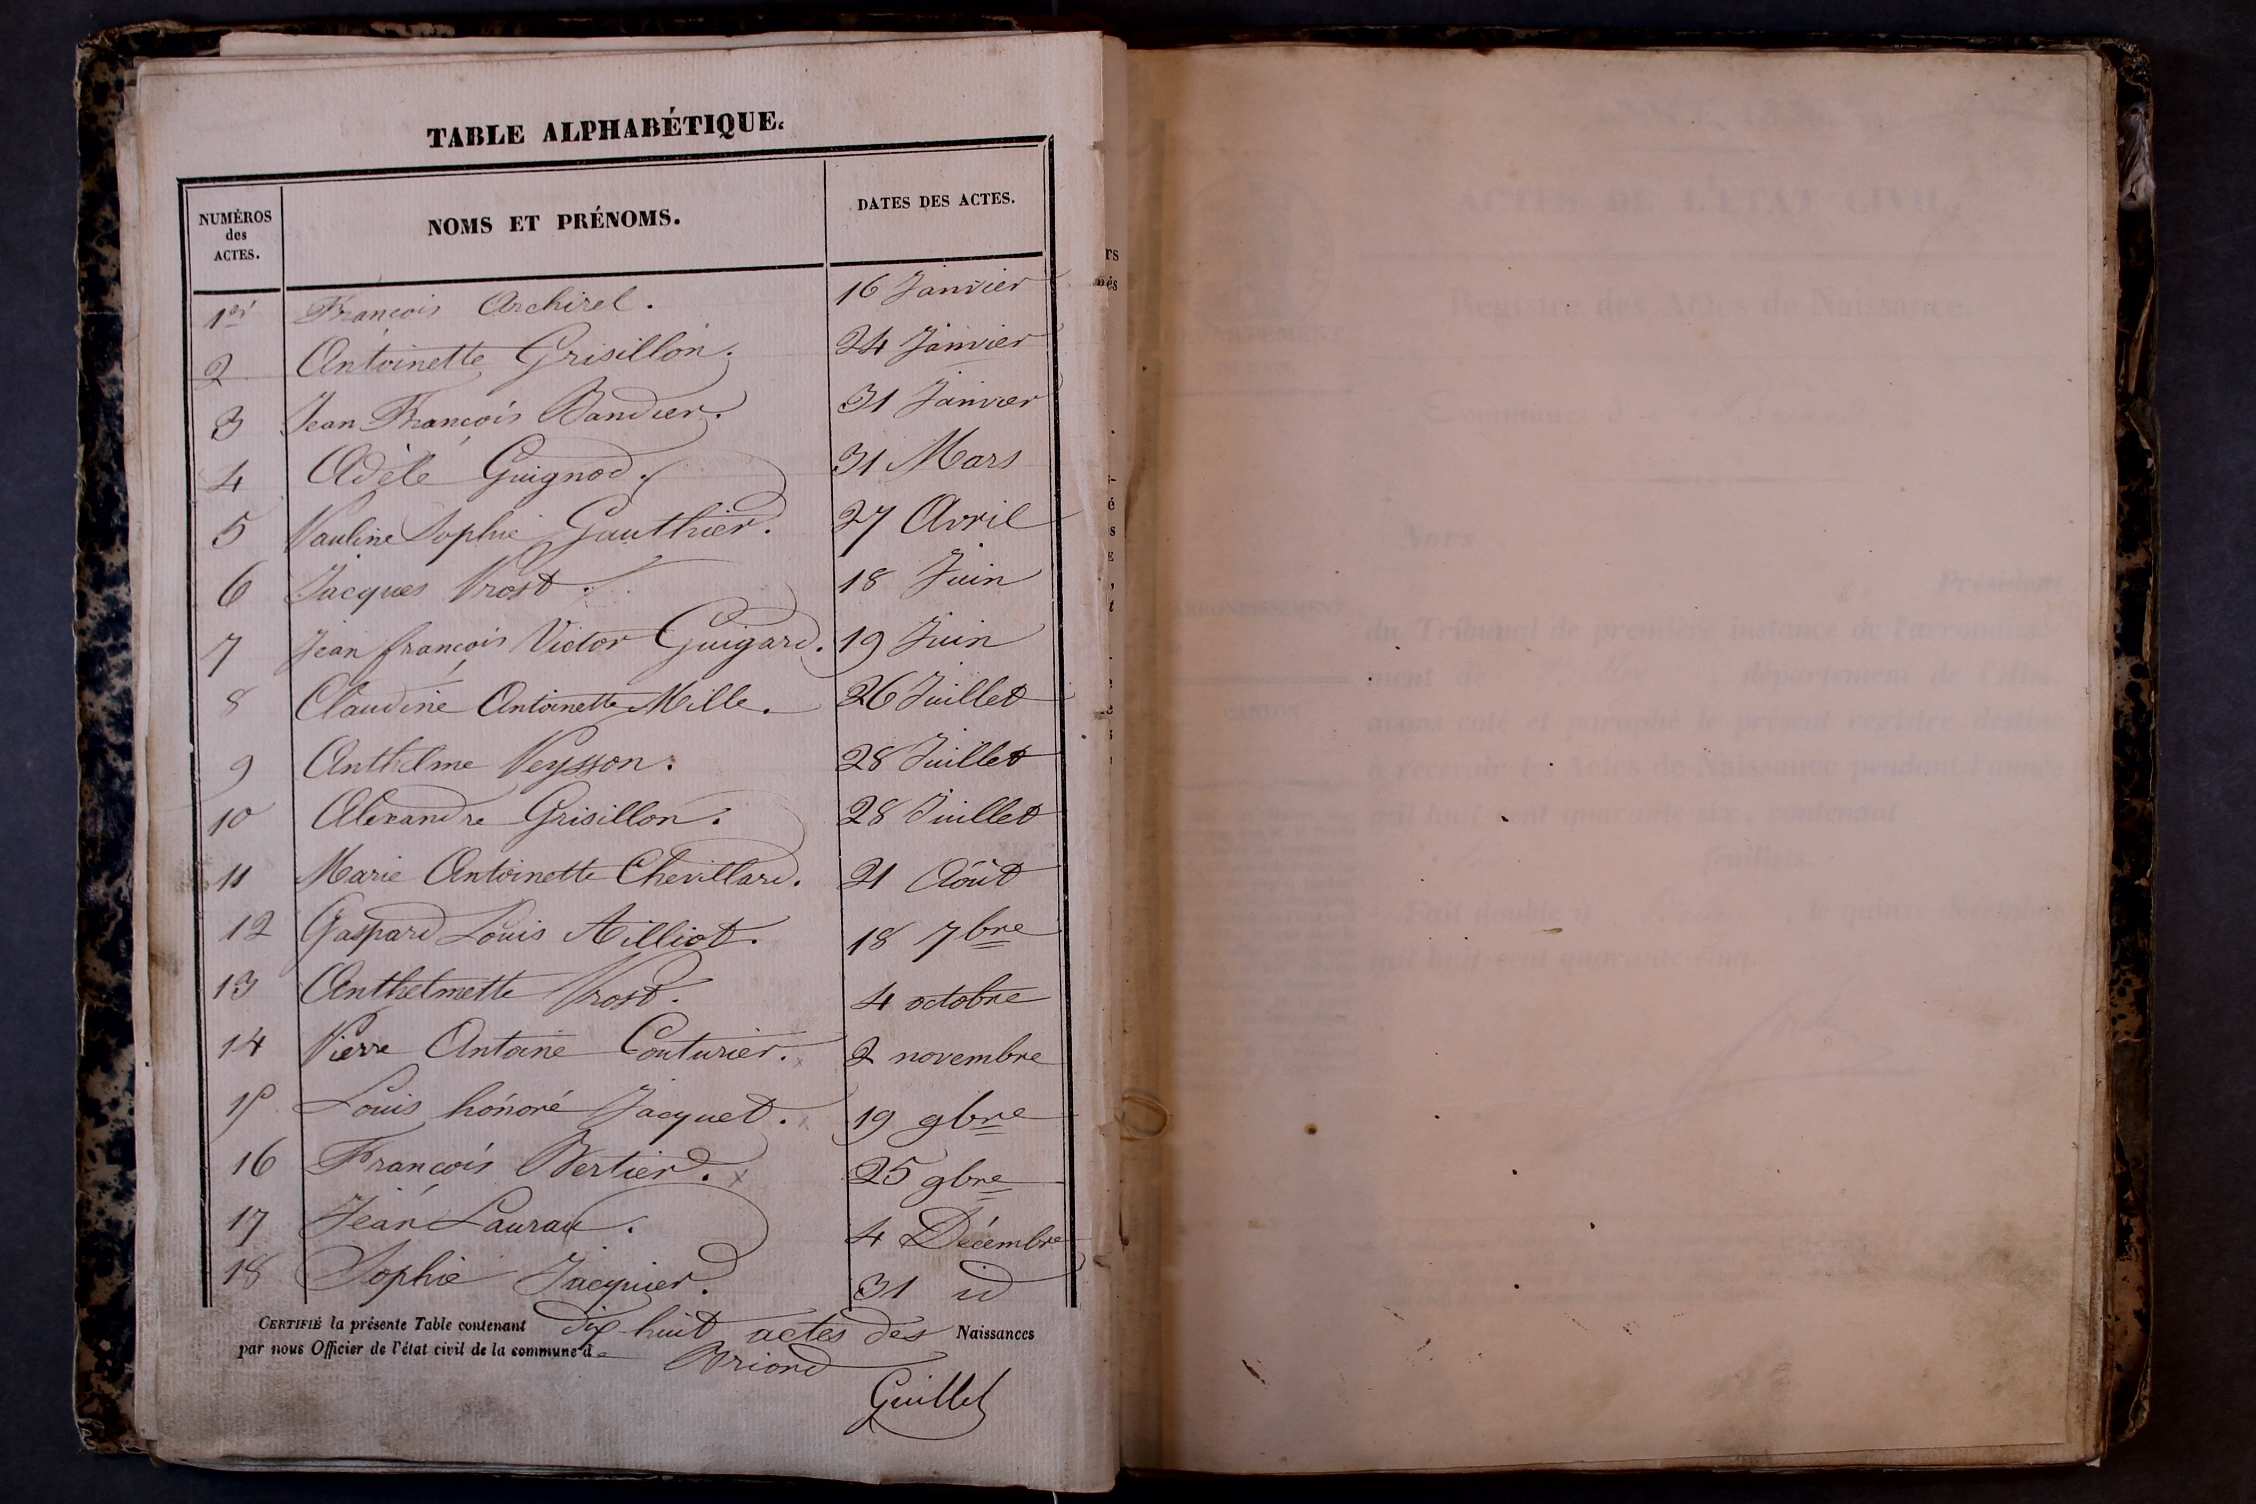 TABLE ALPHABÉTIQUE.
NUMÉROS des ACTES. NOMS ET PRÉNOMS. DATES DES ACTES.
1er François Archirel. 16 Janvier
2 Antoinette Grisillon. 24 Janvier
3 Jean François Bandier. 31 Janvier
4 Adèle Guignod. 31 Mars
5 Pauline Sophie Gauthier. 27 Avril
6 Jacques Prost. 18 Juin
7 Jean françois Victor Guigard. 19 Juin
8 Claudine Antoinette Mille. 26 Juillet
9 Anthelme Peysson. 28 Juillet
10 Alexandre Grisillon. 28 Juillet
11 Marie Antoinette Chevillard. 21 Août
12 Gaspard Louis Milliot. 18 7bre
13 Anthelmette Prost. 4 octobre
14 Pierre Antoine Couturier. 2 novembre
15 Louis honoré Jacquet. 19 9bre
16 François Bertier. 25 9bre
17 Jean Laurau. 4 Décembre
18 Sophie Jacquier. 31 id
CERTIFIÉ la présente Table contenant dix huit actes des Naissances
par nous Officier de l'état civil de la commune de Briord
Guillet
ACTES DE L'ÉTAT CIVIL.
Registre des Actes de Naissance.
DÉPARTEMENT
Commune d
Nous
Président
ARRONDISSEMENT
du Tribunal de première instance de l'arrondisse-
ment de département de l'Ain
CANTON
avons coté et paraphé le présent registre destiné
à recevoir les Actes de Naissance pendant l'année
mil huit cent quarante six, contenant
feuillets
Fait double à le quinze
mil huit cent quarante-cinq.